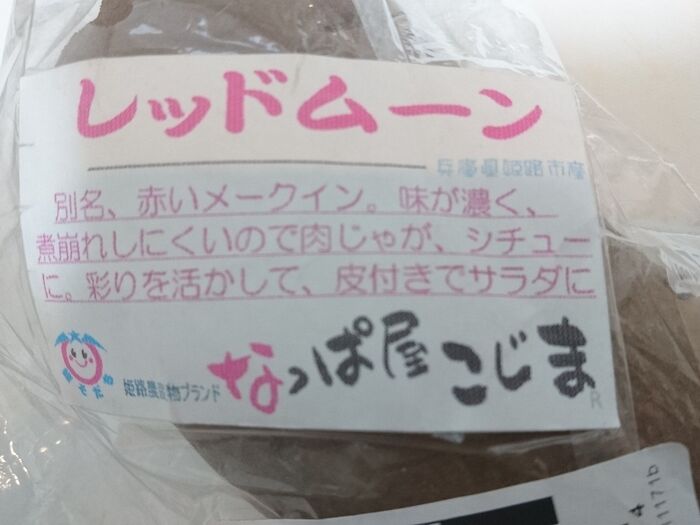 レッドムーン
兵庫県姫路市産
別名、赤いメークイン。味が濃く、
煮崩れしにくいので肉じゃが、シチュー
に。彩りを活かして、皮付きでサラダに
なっぱ屋こじま
R
4
11171b